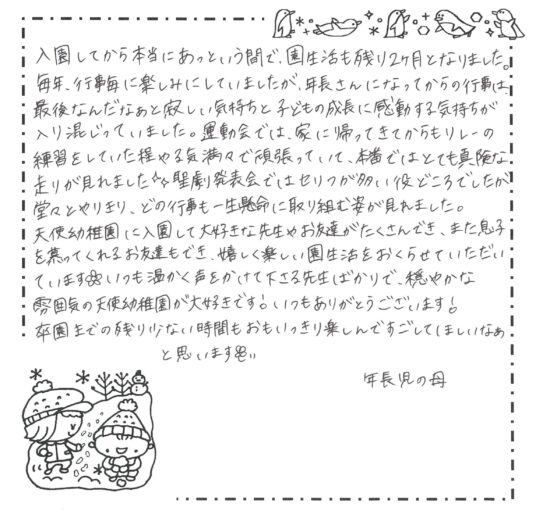 入園してから本当にあっという間で、園生活も残り2ヶ月となりました。
毎年、行事毎に楽しみにしていましたが、年長さんになってからの行事は、
最後なんだなぁと寂しい気持ちと子どもの成長に感動する気持ちが
入り混じっていました。運動会では、家に帰ってきてからもリレーの
練習をしていた程やる気満々で頑張っていて、本番ではとても真険な
走りが見れました☆聖劇発表会ではセリフが多い役どころでしたが
堂々とやりきり、どの行事も一生懸命に取り組む姿が見れました。
天使幼稚園に入園して大好きな先生やお友達がたくさんでき、また息子
を慕ってくれるお友達もでき、嬉しく楽しい園生活をおくらせていただい
ています いつも温かく声をかけて下さる先生ばかりで、穏やかな
雰囲気の天使幼稚園が大好きです!いつもありがとうございます!
卒園までの残り少ない時間もおもいっきり楽しんですごしてほしいなぁ
と思います
年長児の母